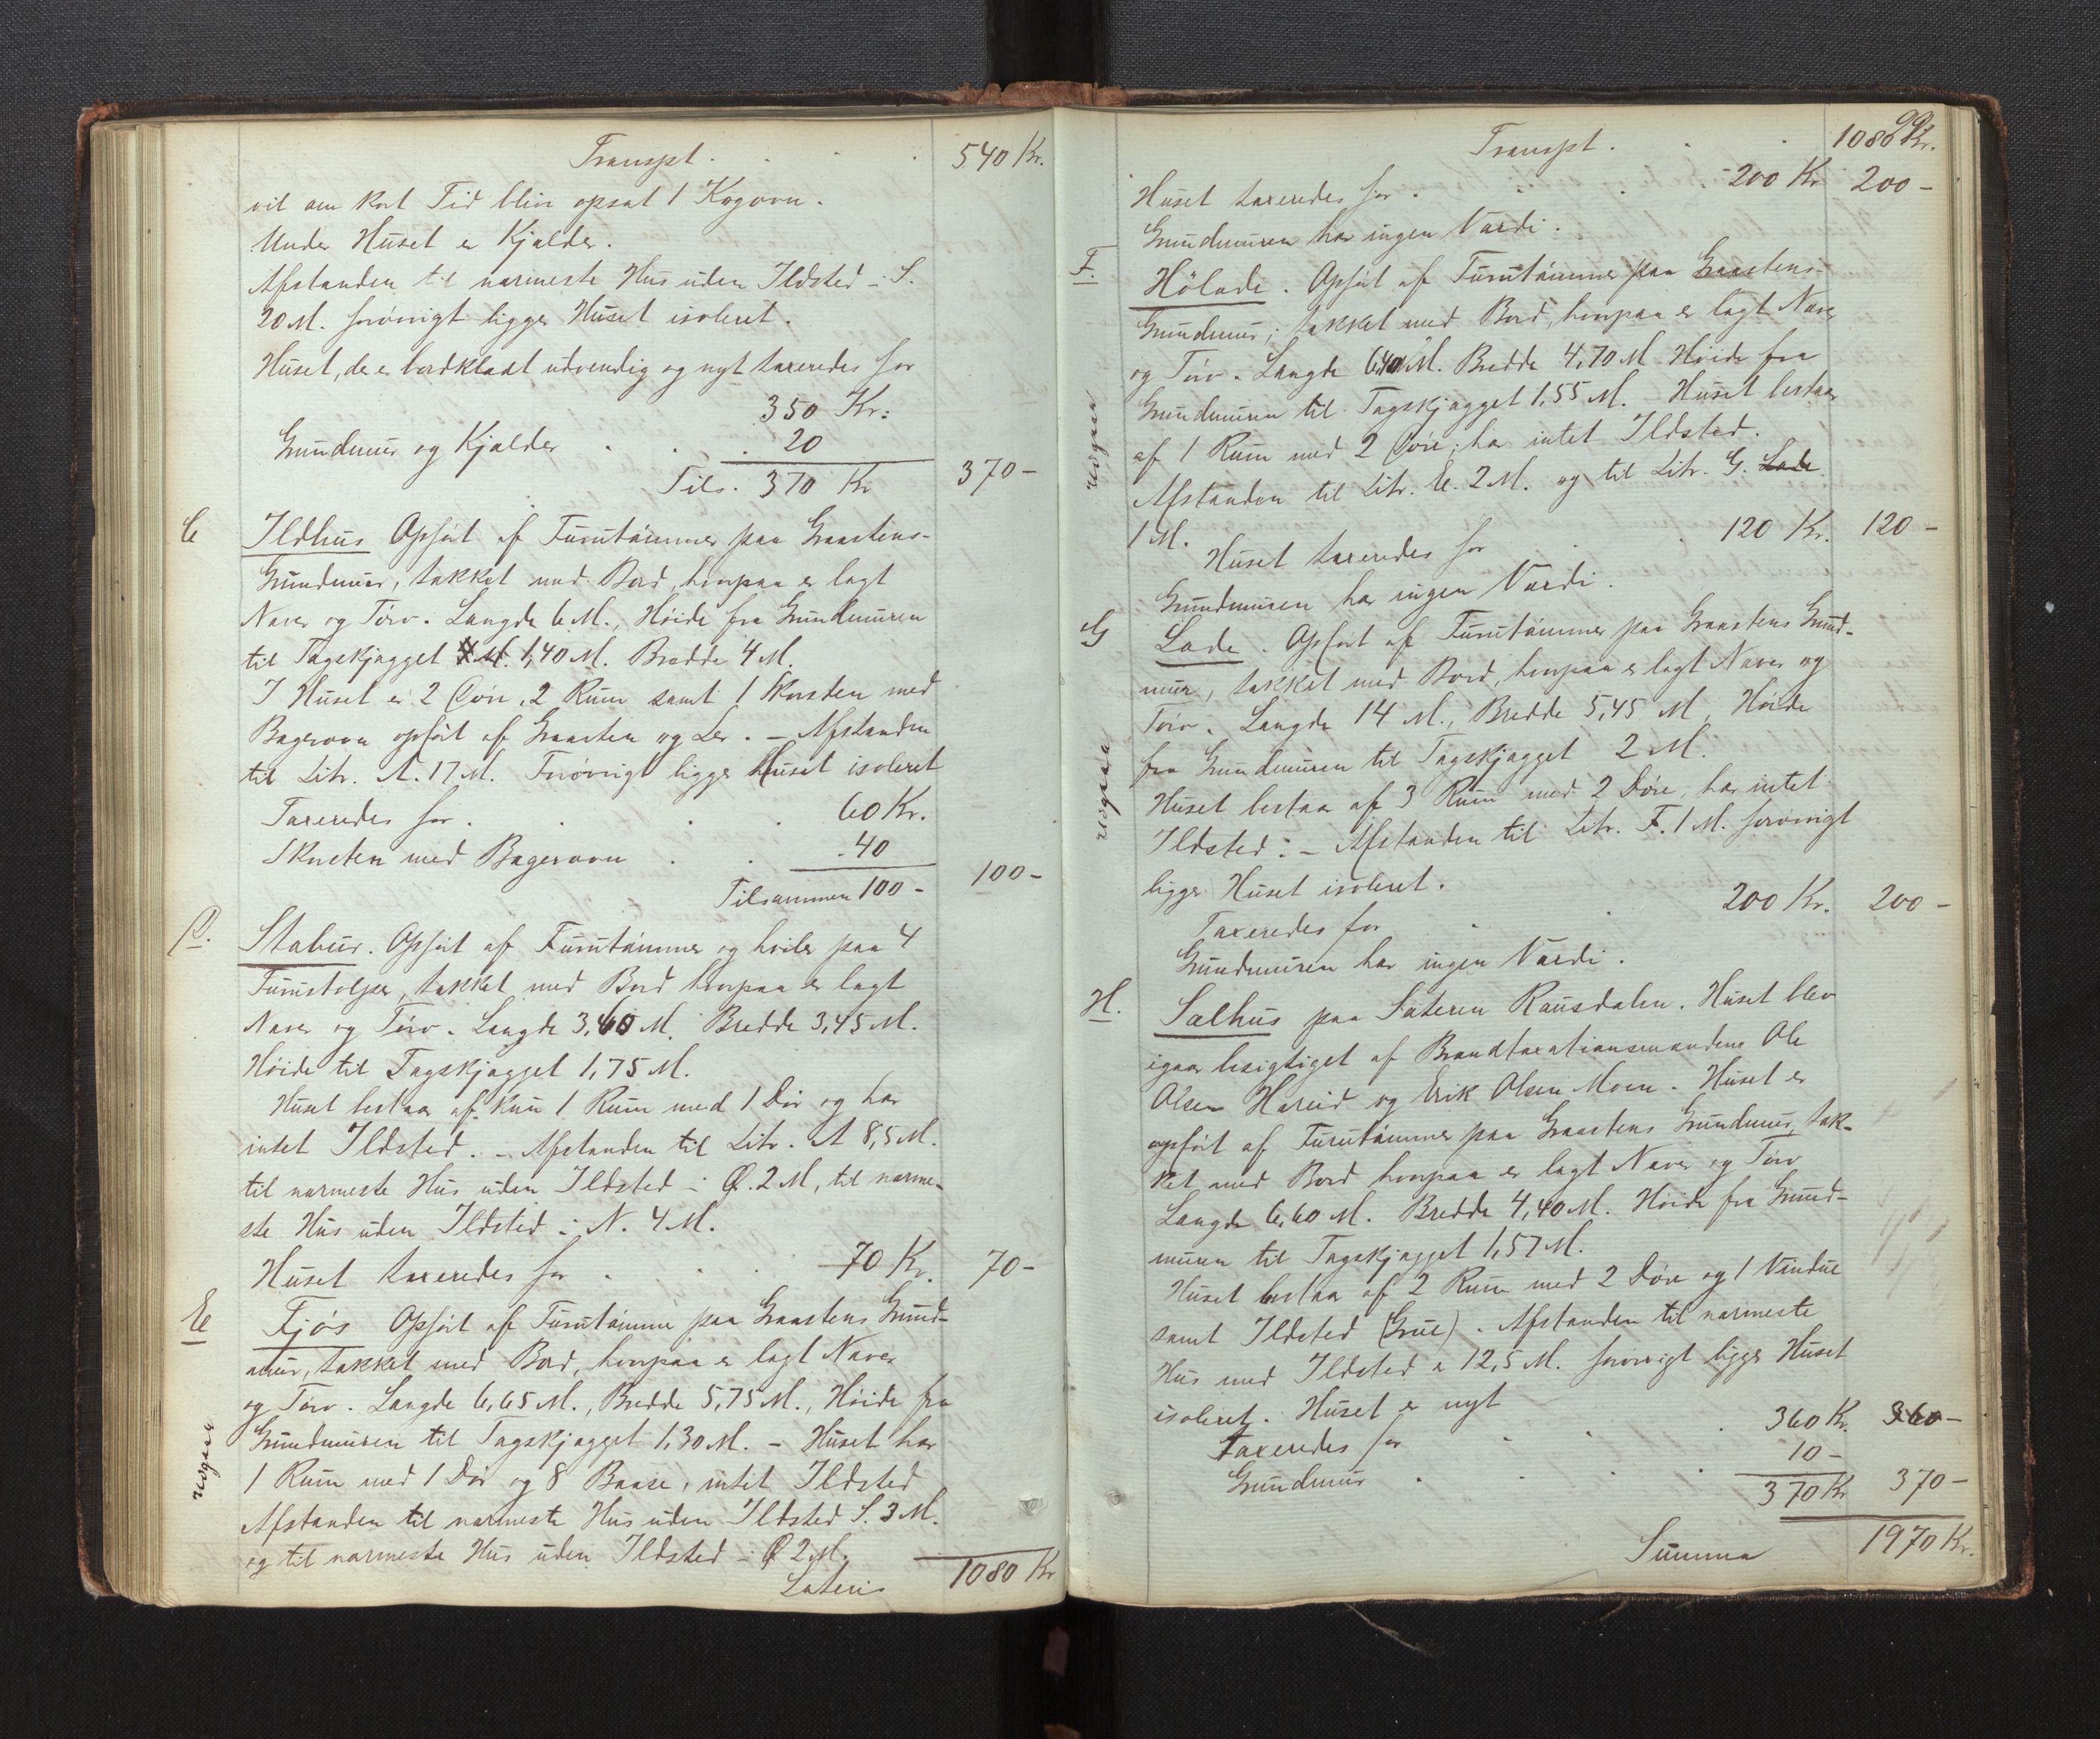 Transpt. 540 Kr.
vil om kort Tid blive opsat 1 Kogovn.
Under Huset er Kjælder.
Afstanden til nærmeste Hus uden Ildsted i S.
20 M. forövrigt ligger Huset isoleret.
Huset, der er bordklædt udvendig og nyt taxeredes for
350 Kr.
Grundmur og Kjælder . . 20
Tils. 370 Kr 370-
C Ildhus Opfört af Furutömmer paa Graastens-
Grundmur, tækket med Bord, hvorpaa er lagt
Næver og Törv. Længde 6 M., Höide fra Grundmuren
til Tagskjægget 1,40 M. Bredde 4 M.
I Huset er 2 Döre, 2 Rum samt 1 Skorsten med
Bagerovn opfört af Graasten og Ler. - Afstanden
til Litr. A. 17 M. Forövrigt ligger Huset isoleret
Taxeredes for . . . 60 Kr.
Skorsten med Bagerovn . . 40
Tilsammen 100 - 100-
D. Stabur. Opfört af Furutömmer og hviler paa 4
Furustolper, tækket med Bord hvorpaa er lagt
Næver og Törv. Længde 3,60 M. Bredde 3,45 M.
Höide til Tagskjægget 1,75 M.
Huset bestaar af kun 1 Rum med 1 Dör og har
intet Ildsted. - Afstanden til Litr. A 8,5 M.
til nærmeste Hus uden Ildsted i Ø. 2 M, til nærme-
ste Hus uden Ildsted i N. 4 M.
Huset taxeredes for . . . 70 Kr. 70-
E Fjös Opfört af Furutömmer paa Graastens Grund-
mur, tækket med Bord, hvorpaa er lagt Næver
og Törv. Længde 6,65 M., Bredde 5,75 M., Höide fra
Grundmuren til Tagskjægget 1,30 M. - Huset har
udgaar
1 Rum med 1 Dör og 8 Baase, intet Ildsted
Afstanden til nærmeste Hus uden Ildsted S. 3 M.
og til nærmeste Hus uden Ildsted i Ø 2 M.
Lateris 1080 Kr
99
Transpt. . . 1080 Kr.
Huset taxeredes for . . . 200 Kr 200-
Grundmuren har ingen Værdi.
F. Hölade. Opfört af Furutömmer paa Graastens-
Grundmur; tækket med Bord, hvorpaa er lagt Næver
og Törv. Længde 6,40 M. Bredde 4,70 M Höide fra
Grundmuren til Tagskjægget 1,55 M. Huset bestaar
udgaar
af 1 Rum med 2 Döre; har intet Ildsted.
Afstanden til Litr. E. 2 M. og til Litr. G. Lade
1 M.
Huset taxeredes for . . 120 Kr. 120-
Grundmuren har ingen Værdi.
G Lade. Opfört af Furutömmer paa Graastens Grund-
mur, tækket med Bord, hvorpaa er lagt Næver og
Törv. Længde 14 M., Bredde 5,45 M, Höide
fra Grundmuren til Tagskjægget 2 M.
udgaar
Huset bestaar af 3 Rum med 2 Döre, har intet
Ildsted. - Afstanden til Litr. F. 1 M. forövrigt
ligger Huset isoleret.
Taxeredes for . . 200 Kr. 200-
Grundmuren har ingen Værdi.
H. Sælhus paa Sæteren Rausdalen. Huset blev
igaar besigtiget af Brandtaxationsmændene Ole
Olsen Hareid og Erik Olsen Moen. Huset er
opfört af Furutömmer paa Graastens Grundmur, tæk-
ket med Bord hvorpaa er lagt Næver og Törv
Længde 6,60 M. Bredde 4,40 M. Höide fra Grund-
muren til Tagskjægget 1,57 M.
Huset bestaar af 2 Rum med 2 Döre og 1 Vindue
samt Ildsted (Grue). Afstanden til nærmeste
Hus med Ildsted er 12,5 M. forövrigt ligger Huset
isoleret. Huset er nyt
Taxeredes for . . . 360 Kr. 360-
Grundmur . . . 10-
370 Kr 370-
Summa 1970 Kr.